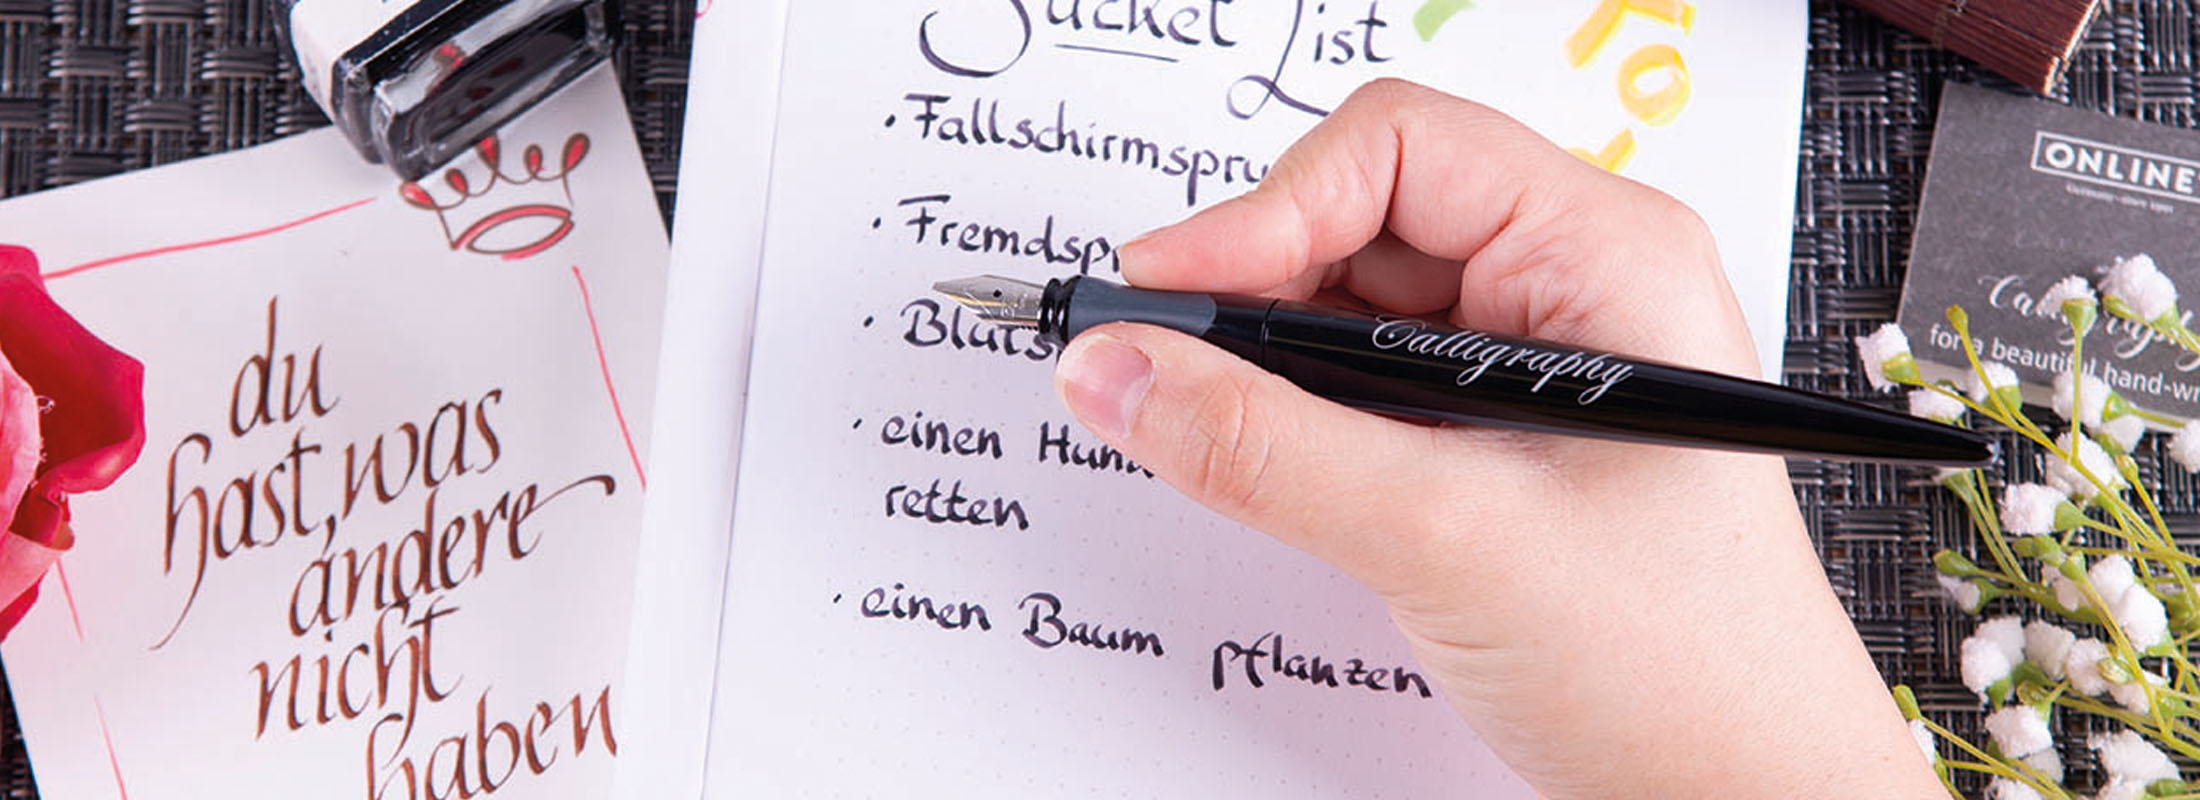 du
hast, was
andere
nicht
haben
Bucket List
• Fallschirmspru
• Fremdspr
• Bluts
• einen Hund
retten
• einen Baum pflanzen
Calligraphy
ONLINE
Calligraphy
for a beautiful hand-wr